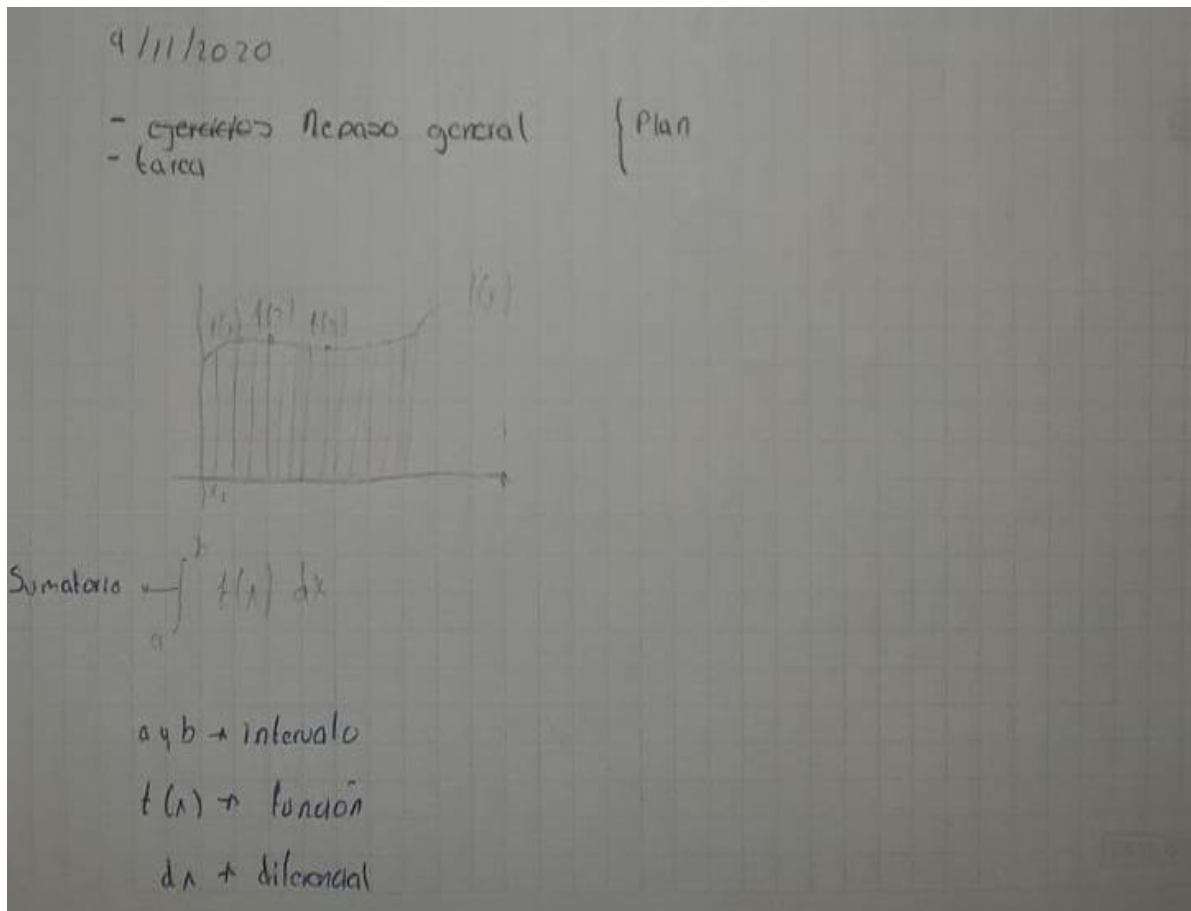 9/11/2020
- ejercicios Repaso general { Plan
- tarea
f(x)
f(1) f(2) f(3)
x1
b
Sumatorio ← ∫ f(x) dx
a
a y b → intervalo
f(x) → función
dx → diferencial